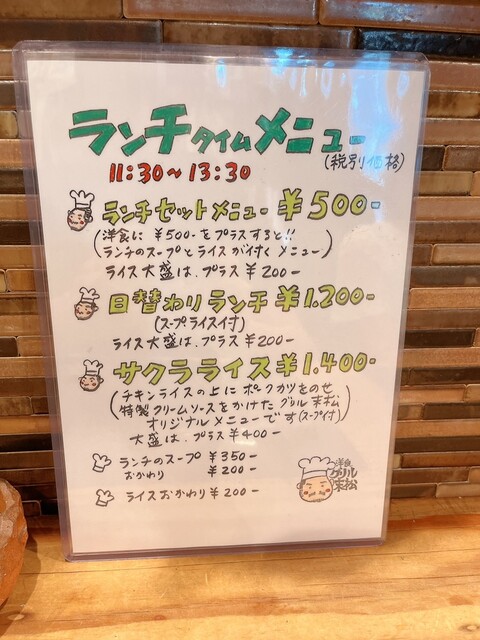 ランチタイムメニュー
(税別価格)
11:30~13:30
ランチセットメニュー ¥500-
(洋食に ¥500-をプラスすると!!
ランチのスープとライスが付くメニュー)
ライス大盛は、プラス ¥200-
日替わりランチ ¥1.200-
(スープライス付)
ライス大盛は、プラス ¥200-
サクラライス ¥1.400-
(チキンライスの上にポークカツをのせ
特製クリームソースをかけたグリル末松
オリジナルメニューです(スープ付))
大盛は、プラス¥400-
ランチのスープ ¥350-
おかわり ¥200-
ライスおかわり ¥200-
洋食
グリル
末松